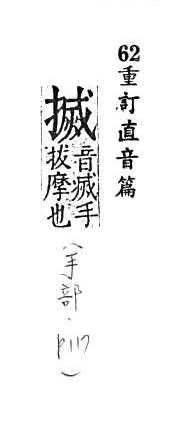 62重訂直音篇
搣音滅手拔摩也(手部·P117)